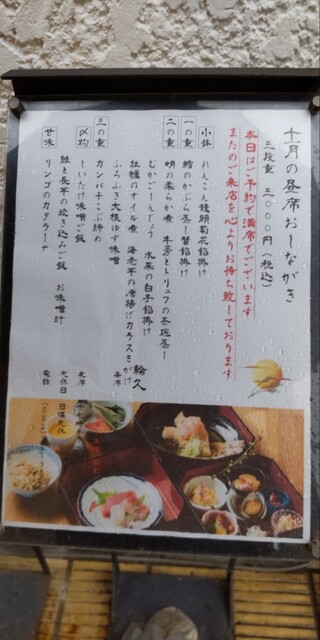 十月の昼席おしながき
三段重 三〇〇〇円(税込)
本日はご予約で満席でございます
またのご来店を心よりお待ち致しております
小鉢 れんこん饅頭菊花餡掛け
一の重 鱈のかぶら蒸し 蟹餡掛け
二の重 蛸の柔らか煮 牛蒡とトリュフの茶碗蒸し
むかごしんじょう 水菜の白子餡掛け
牡蠣のオイル煮 海老芋の唐揚げカラスミがけ
ふろふき大根ゆず味噌
三の重 カンパチこぶ締め
〆物 しいたけ味噌ご飯
鮭と長芋の炊き込みご飯 お味噌汁
甘味 リンゴのカタラーナ
輪久
昼席
夜席
定休日 日曜
電話